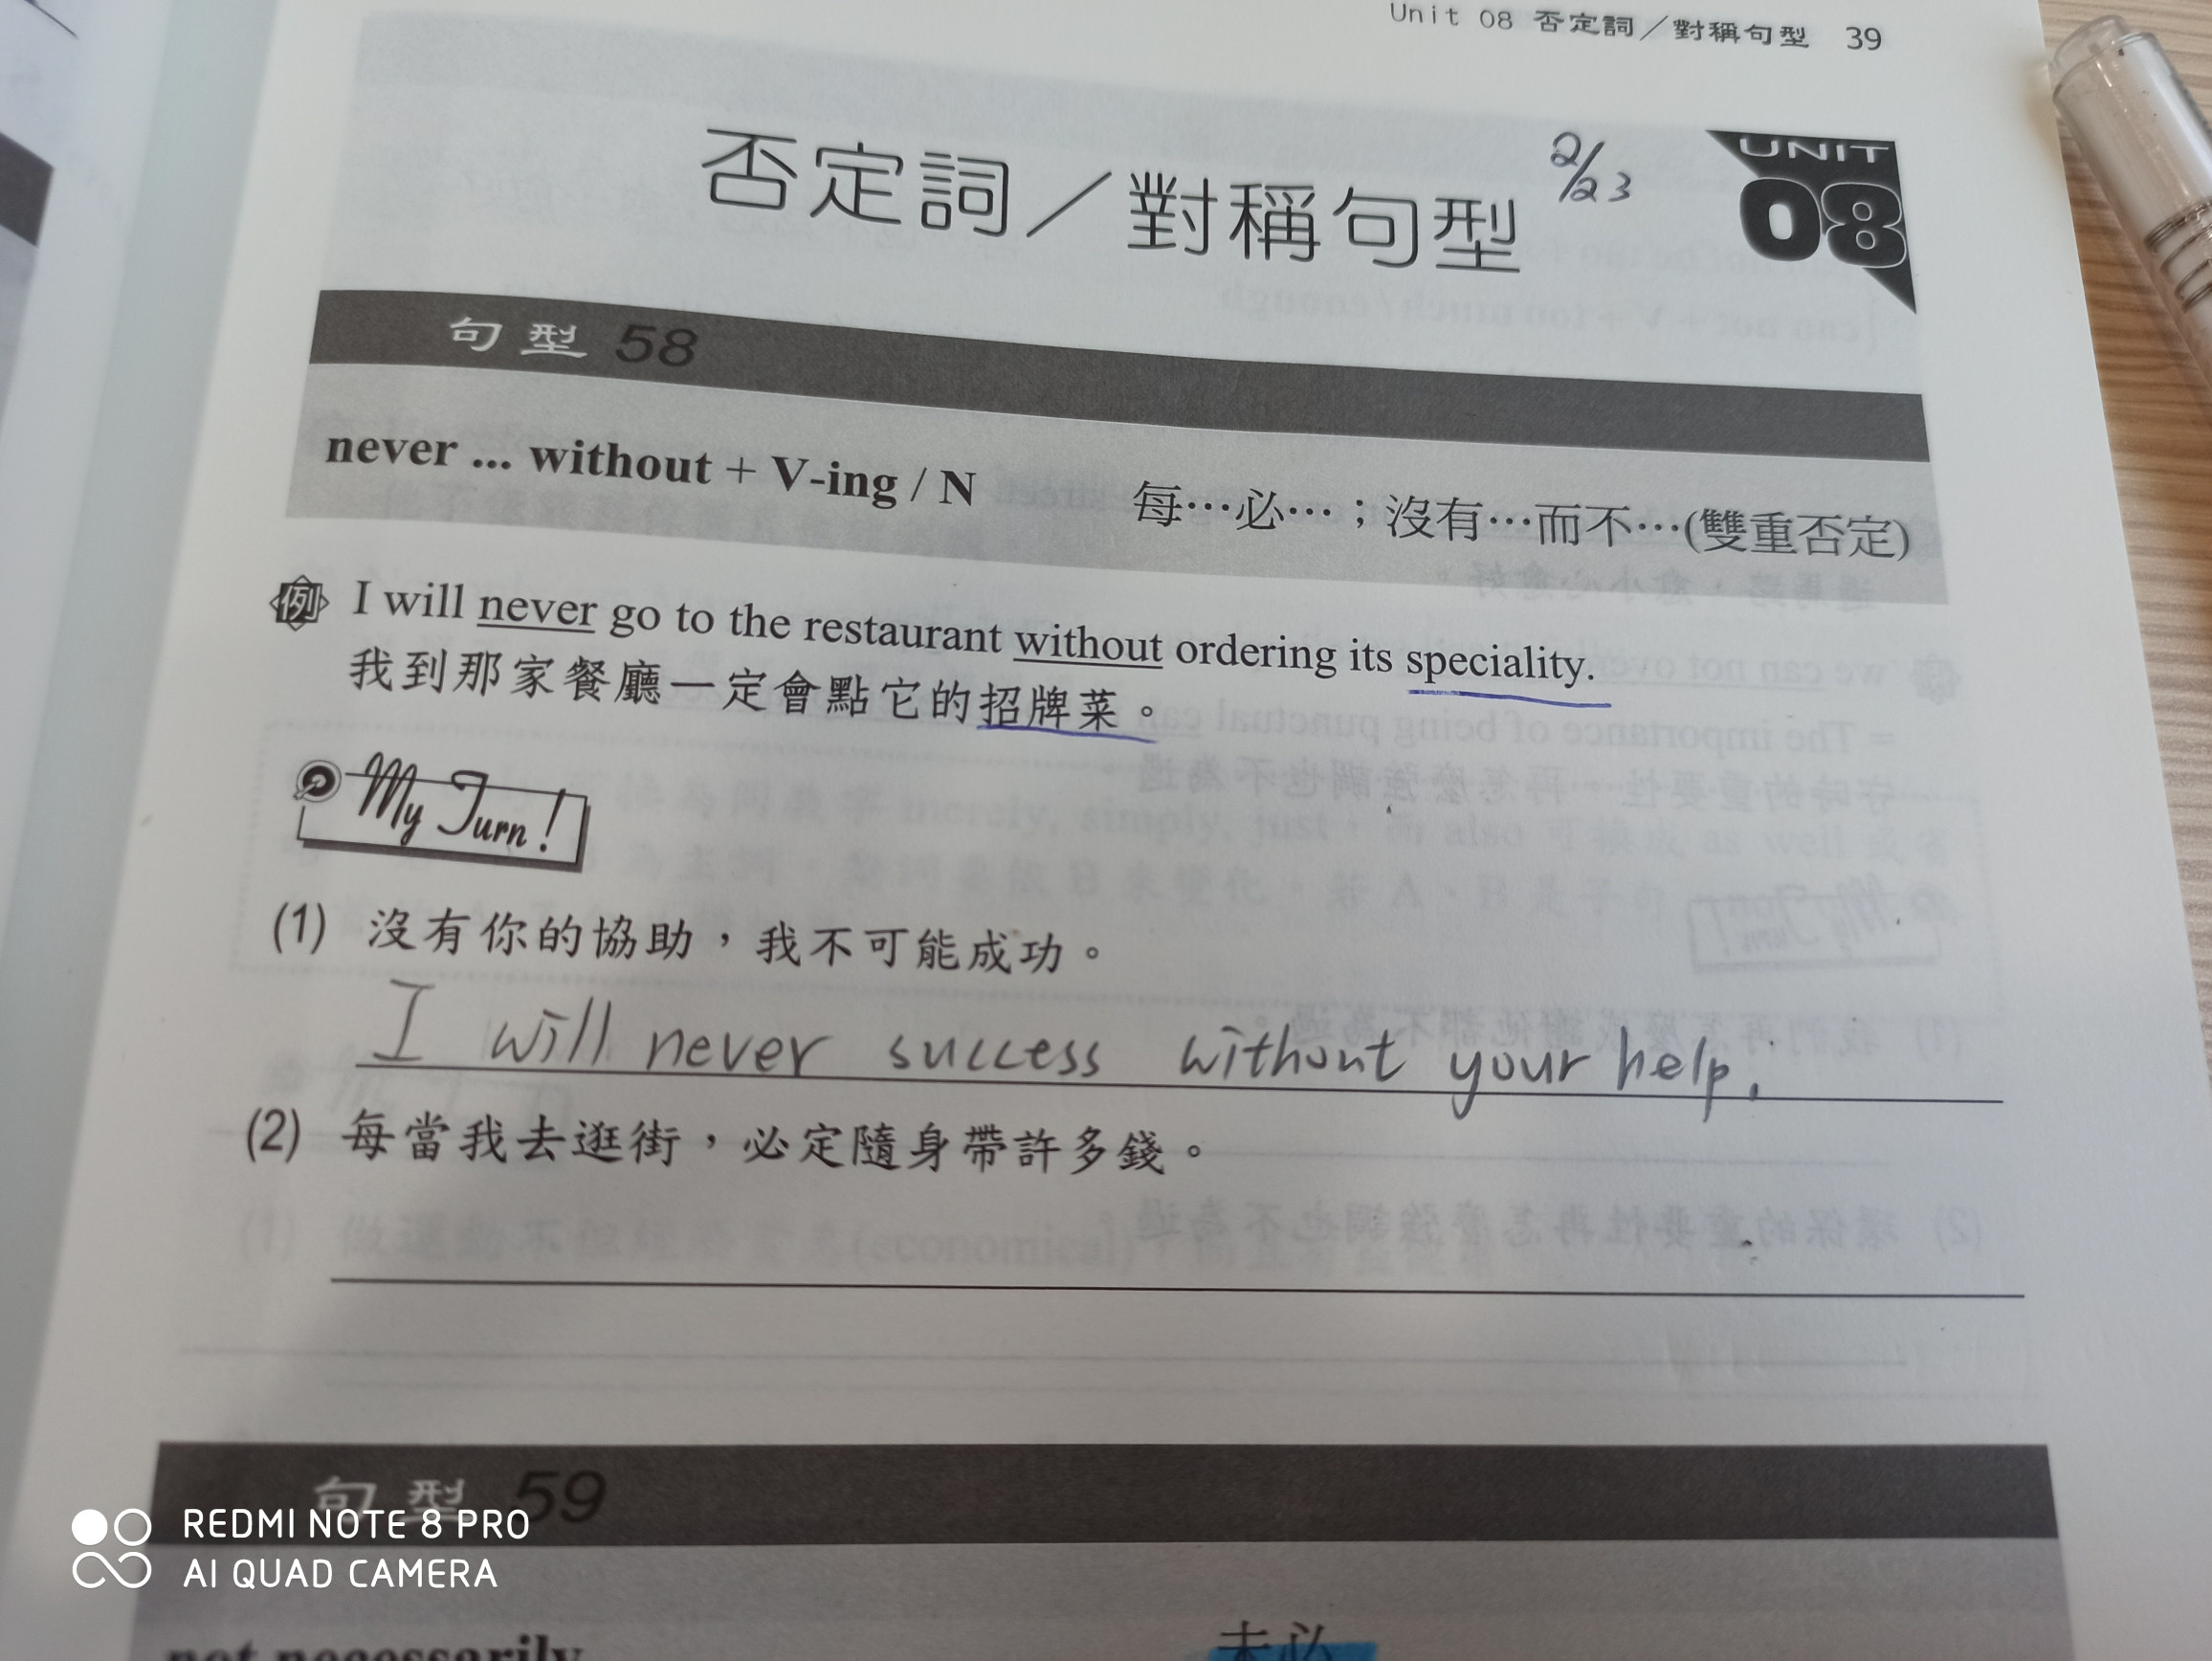 Unit 08 否定詞／對稱句型 39
否定詞／對稱句型 2/23
UNIT
08
句型 58
never ... without + V-ing / N 每…必…；沒有…而不…(雙重否定)
例 I will never go to the restaurant without ordering its speciality.
我到那家餐廳一定會點它的招牌菜。
My Turn!
(1) 沒有你的協助，我不可能成功。
I will never success without your help.
(2) 每當我去逛街，必定隨身帶許多錢。
句型 59
not necessarily 未必
REDMI NOTE 8 PRO
AI QUAD CAMERA